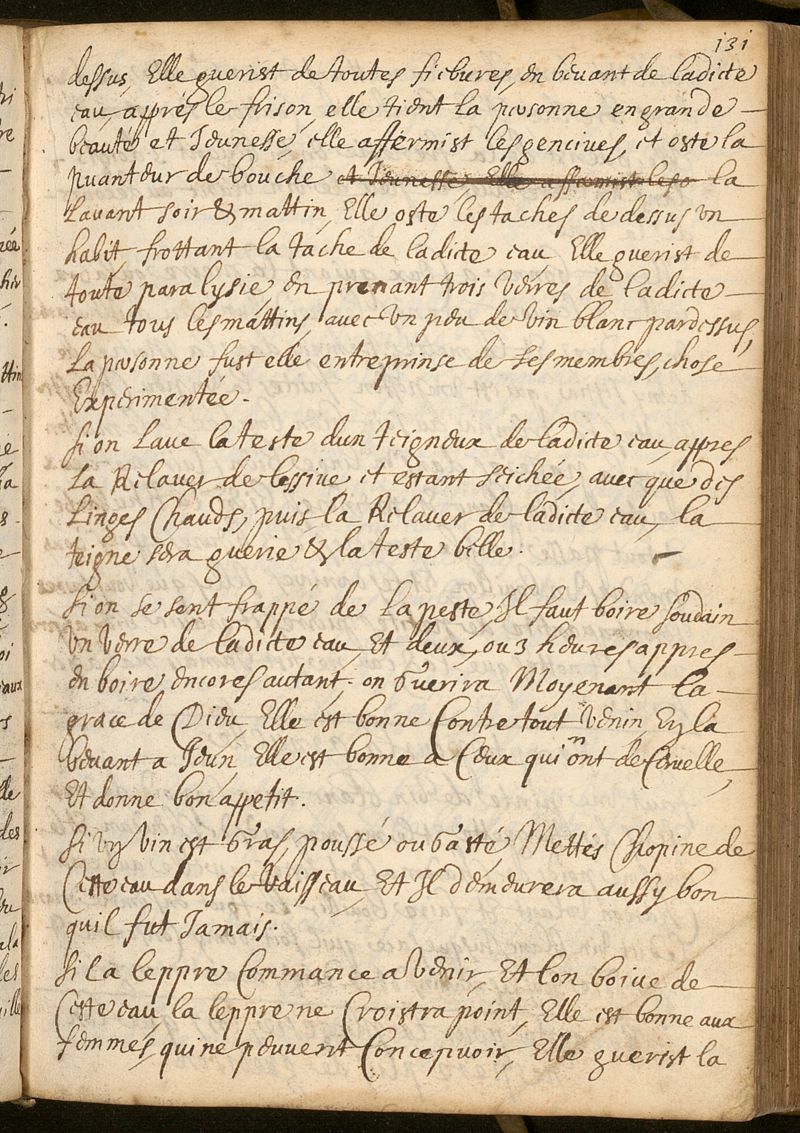 131
dessus, Elle guerist de toutes fiebures, en beuant de ladicte
eau, apprés le frison, elle tient la personne en grande
beauté et Jeunesse, elle affermist les genciues, et oste la
puanteur de bouche et Jeunesse, Elle affermist les la
Lauant soir & mattin, Elle oste les taches de dessus un
habit, frottant la tache de ladicte eau Elle guerist de
toute paralysie, en prenant trois verres de ladicte
eau tous les mattins, avec un peu de vin blanc pardessus,
La personne fust elle entreprinse de ses membres, chose
Experimentée.
Si on Laue la teste dun teigneux de ladicte eau, appres
La Relauer de lessiue et estant seichée, auecque des
Linges Chauds, puis la Relauer de ladicte eau, la
teigne sera guerie & la teste belle.
Si on se sent frappé de la peste, Il faut boire soudain
un verre de ladicte eau, Et deux, ou 3 heures appres
en boire encores autant, on Guerira Moyenant la
grace de Dieu, Elle est bonne Contre tout venin, En la
beuant a Jeun, Elle est bonne a Ceux qui n'ont de Ceruelle,
Et donne bon appetit.
Si un vin est Gras, poussé ou Gasté, Mettés Chopine de
Cette eau dans le Vaisseau, Et Il demeurera aussy bon
quil fut Jamais.
Si la leppre Commance a Venir, Et lon boiue de
Cette eau, la leppre ne Croistra point, Elle est bonne aux
femmes, qui ne peuuent Concepuoir, Elle guerist la